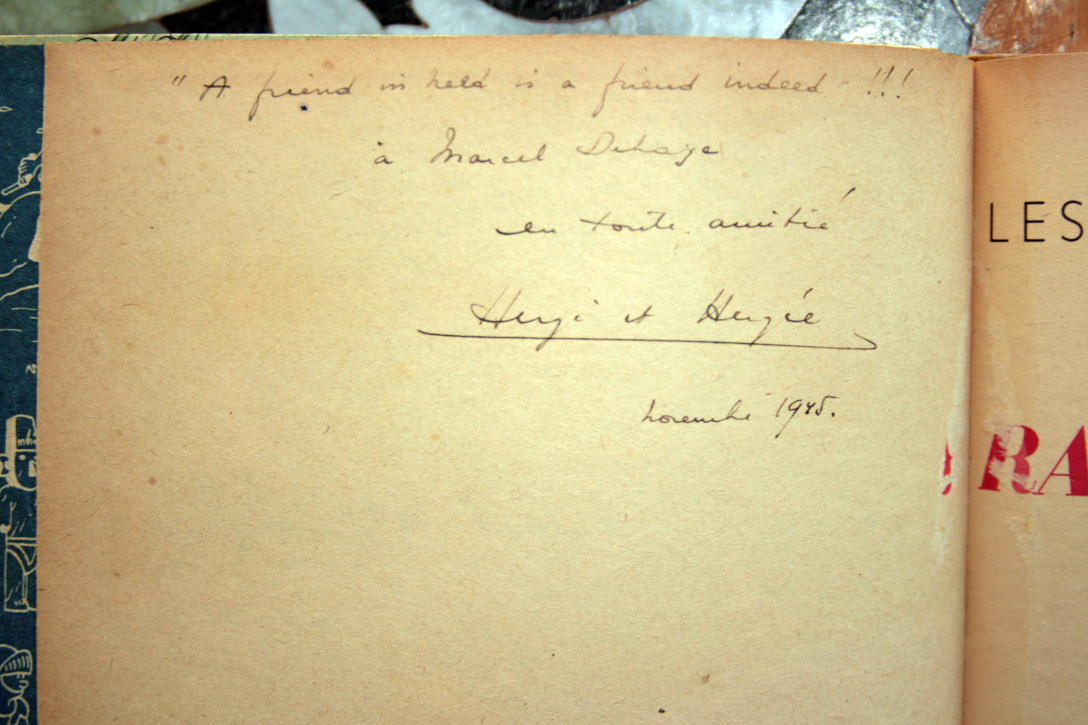 "A friend in need is a friend indeed" !!!
à Marcel Dehaye
en toute amitié
Hergé et Hergée
novembre 1945.
LES
RA